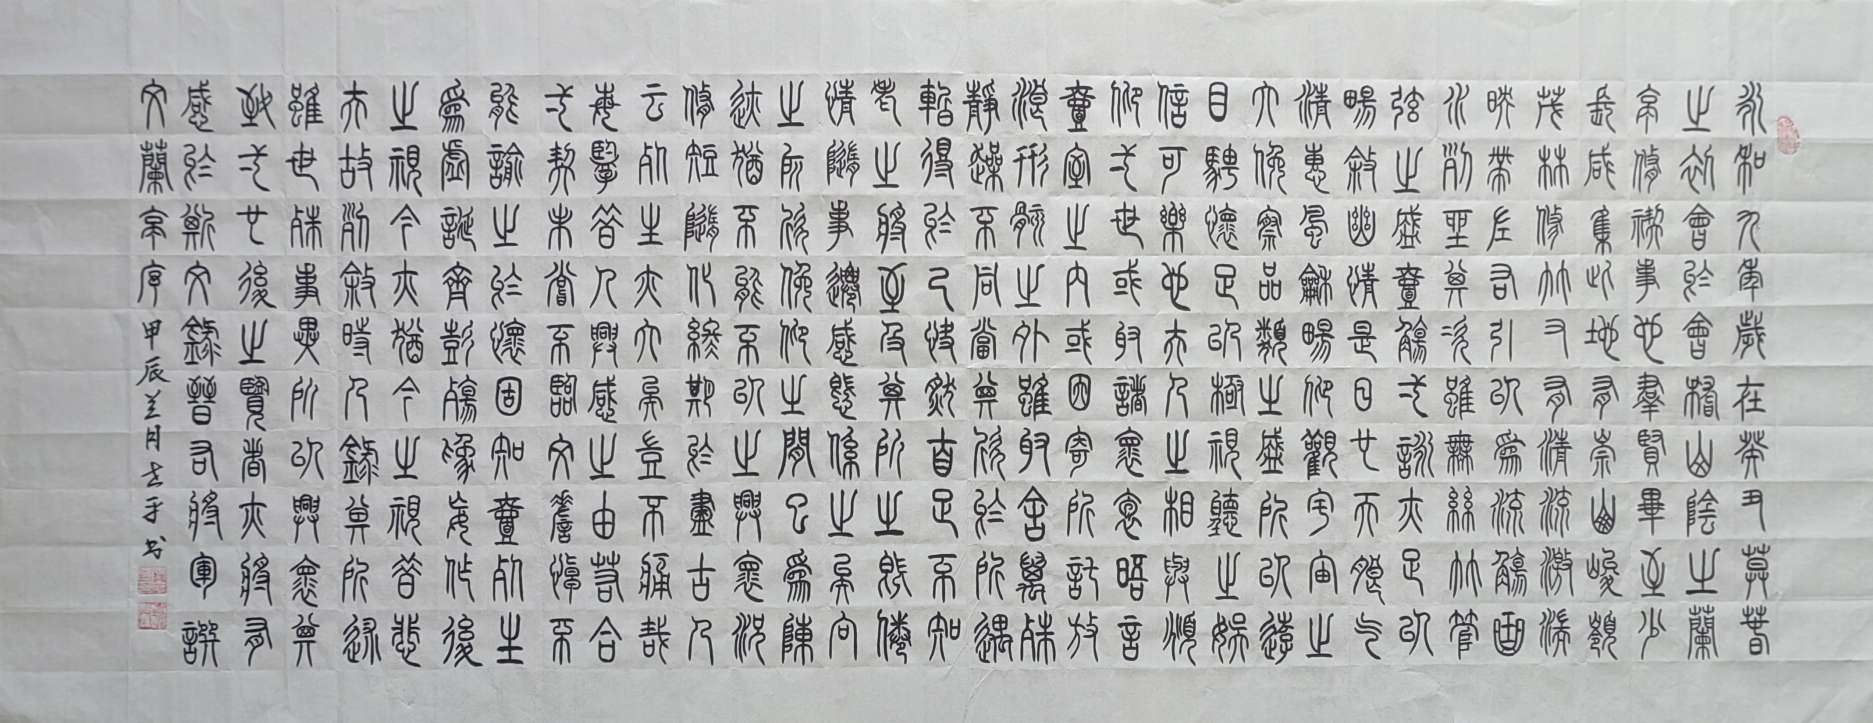 永和九年歲在癸丑莫春
之初會於會稽山陰之蘭
亭修禊事也羣賢畢至少
長咸集此地有崇山峻領
茂林修竹又有清流激湍
映帶左右引以為流觴曲
水列坐其次雖無絲竹管
弦之盛壹觴弌詠亦足以
暢敘幽情是日也天朗气
清惠風龢暢仰觀宇宙之
大俛察品類之盛所以遊
目騁懷足以極視聽之娛
信可樂也夫人之相與頫
仰弌世或取諸懷抱晤言
壹室之內或因寄所託放
浪形骸之外雖取舍萬殊
靜躁不同當其欣於所遇
暫得於己快然自足不知
老之將至及其所之既倦
情隨事遷感慨係之矣向
之所欣俛仰之間已為陳
迹猶不能不以之興懷況
修短隨化終期於盡古人
云死生亦大矣豈不痛哉
每擥昔人興感之由若合
弌契未嘗不臨文嗟悼不
能諭之於懷固知壹死生
為虛誕齊彭殤為妄作後
之視今亦猶今之視昔悲
夫故列敘時人錄其所述
雖世殊事異所以興懷其
致弌也後之覽者亦將有
感於斯文錄晉右將軍譔
文蘭亭序甲辰兰月书